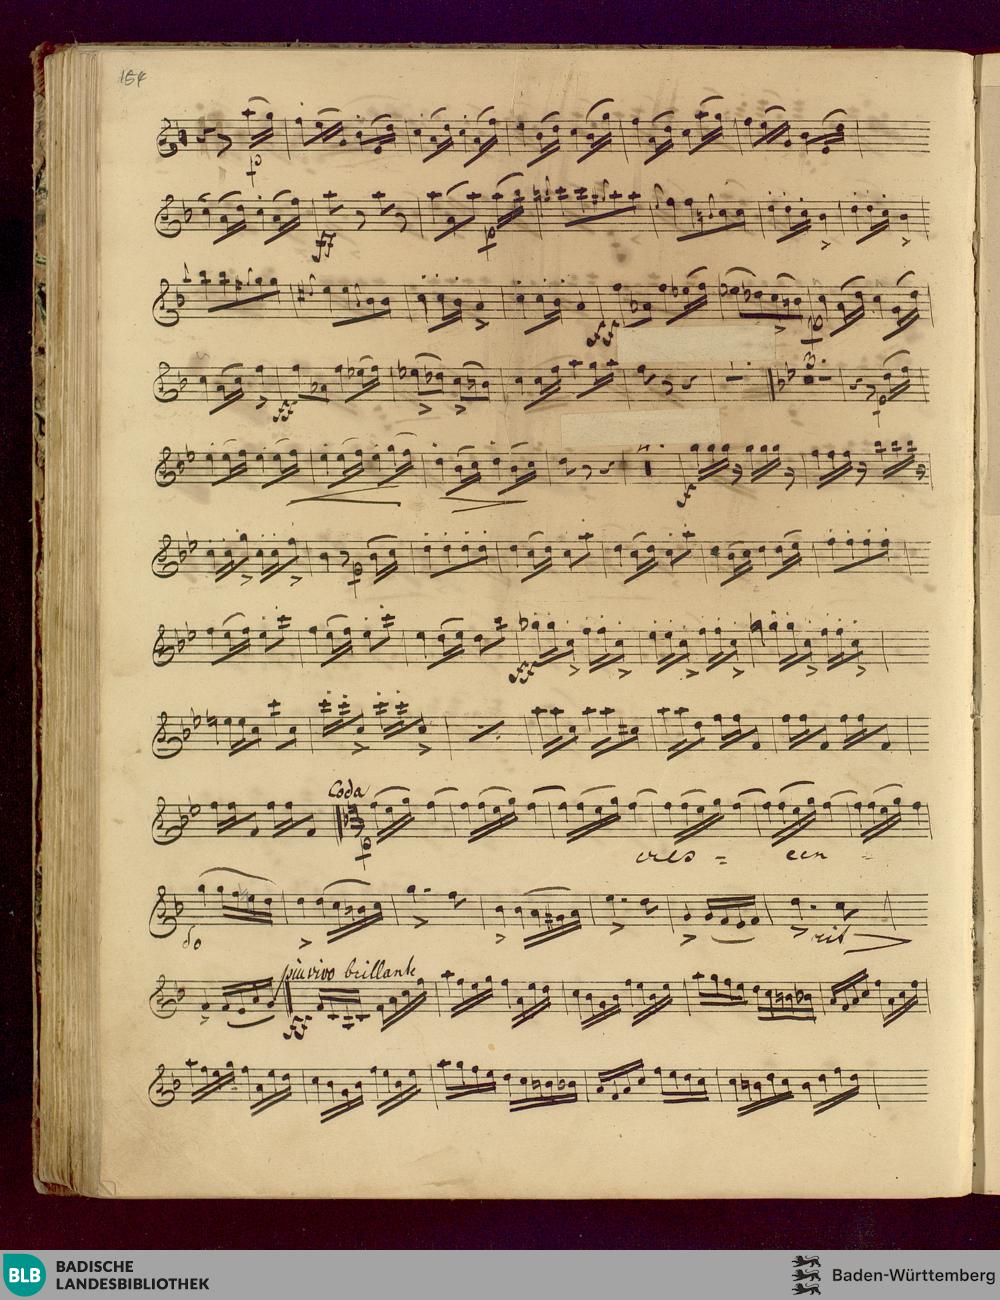 154
p
ff
p
ff
p
ff
3.
p
4.
ff
p
ff
Coda
p
cres = cen -
do
rit
piu vivo brillante
ff
BLB BADISCHE
LANDESBIBLIOTHEK
Baden-Württemberg